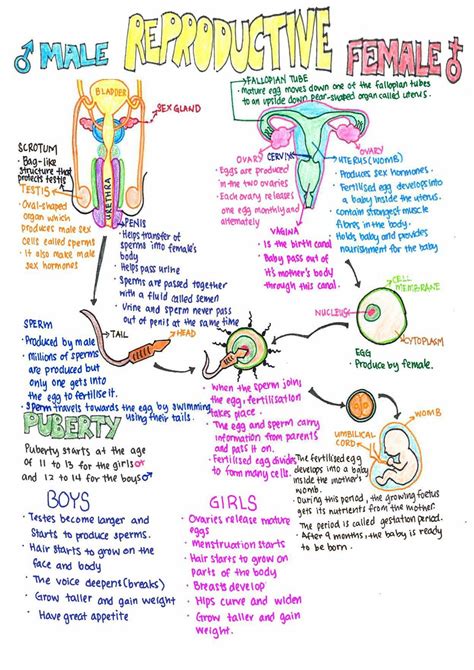 ♂ MALE REPRODUCTIVE FEMALE
FALLOPIAN TUBE
• Mature egg moves down one of the fallopian tubes
to an upside down pear-shaped organ called uterus.
BLADDER
SEX GLAND
URETHRA
SCROTUM
• Bag-like
structure that
protects testis
TESTIS
• Oval-shaped
organ which
produces male sex
cells called sperms
• It also make male
sex hormones
PENIS
• Helps transfer of
sperms into female's
body
• Helps pass urine
• Sperms are passed together
with a fluid called semen
• Urine and sperm never pass
out of penis at the same time
OVARY
CERVIX
OVARY
• Eggs are produced
in the two ovaries
• Each ovary releases
one egg monthly and
alternately
VAGINA
• Is the birth canal
• Baby pass out of
it's mother's body
through this canal.
UTERUS (WOMB)
• Produces sex hormones.
• Fertilised egg develops into
a baby inside the uterus.
• contain strongest muscle
fibres in the body.
• Holds baby and provides
nourishment for the baby
CELL
MEMBRANE
NUCLEUS
CYTOPLASM
EGG
• Produce by female.
SPERM
• Produced by male
• Millions of sperms
are produced but
only one gets into
the egg to fertilise it.
• Sperm travels towards the egg by swimming
using their tails.
TAIL
HEAD
• When the sperm join
the egg, fertilisation
takes place.
• The egg and sperm carry
information from parents
and pass it on.
• Fertilised egg divides
to form many cells.
WOMB
UMBILICAL
CORD
• The fertilised egg
develops into a baby
inside the mother's
womb.
• During this period, the growing foetus
gets its nutrients from the mother.
• The period is called gestation period.
• After 9 months, the baby is ready
to be born.
PUBERTY
Puberty starts at the age
of 11 to 13 for the girls♀
and 12 to 14 for the boys♂
BOYS
• Testes become larger and
starts to produce sperms.
• Hair starts to grow on the
face and body
• The voice deepens (breaks)
• Grow taller and gain weight
• Have great appetite
GIRLS
• Ovaries release mature
eggs
• Menstruation starts
• Hair starts to grow on
parts of the body
• Breasts develop
• Hips curve and widen
• Grow taller and gain
weight.